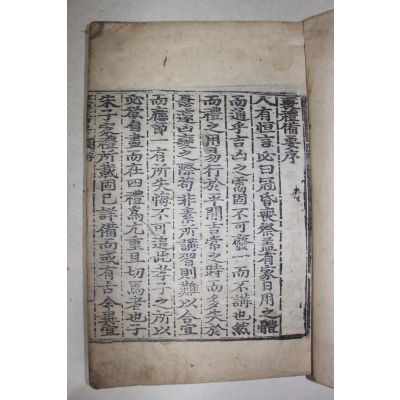 喪禮備要序
人有恒言必曰冠昏喪祭盖有家日用之體
而通乎吉凶之需固不可廢一而不講也然
而禮之用易行於平閑吉常之時而多失於
急遽凶變之際苟非素所講習則難以合宜
而應節一有所失悔不可追此孝子之所以
必欲自盡而在四禮爲尤重且切焉者也子
朱子家禮所載固已詳備而或有古今異宜